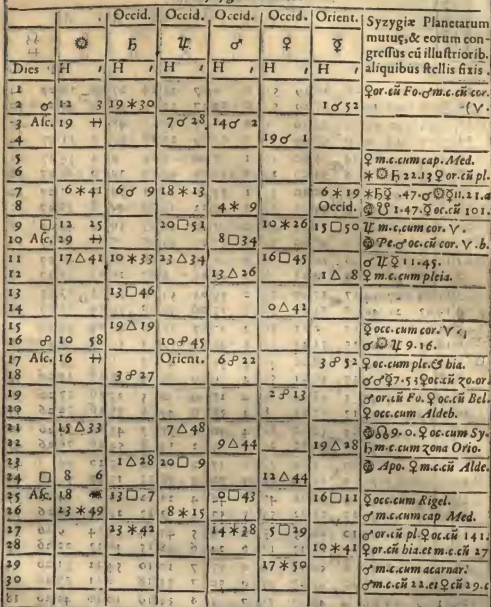 Occid. Occid. Occid. Occid. Orient. Syzygiæ Planetarum
☉ ♄ ♃ ♂ ♀ ☿ mutuę, & eorum con-
gressus cũ illustriorib.
Dies H ′ H ′ H ′ H ′ H ′ H ′ aliquibus stellis fixis.
1 ♀ or. cũ Fo. ♂ m.c. cũ cor.
2 ☌ 12 3 19 ✶ 30 1 ☌ 52 (♈.
3 Asc. 19 7 ☌ 28 14 ☌ 2
4 19 ☌ 1
5 ♀ m.c. cum cap. Med.
6 ✶ ☉ ♄ 22.13 ♀ or. cũ pl.
7 6 ✶ 41 6 ☌ 9 18 ✶ 13 6 ✶ 19 ✶ ♄ ♀ .47. ☌ ☉ ☿ 11.21.a
8 4 ✶ 9 Occid. 1.47. ☿ oc. cũ 101.
9 □ 12 25 20 □ 51 10 ✶ 26 15 □ 50 ♃ m.c. cum cor. ♈.
10 Asc. 29 8 □ 34 Pe. ♂ oc. cum cor. ♈.b.
11 17 △ 41 10 ✶ 33 23 △ 34 16 □ 45 ☌ ♃ ☿ 11.45.
12 13 △ 26 1 △ 8 ♀ m.c. cum pleia.
13 13 □ 46
14 0 △ 42
15 19 △ 19 ☿ occ. cum cor. ♈
16 ☍ 10 58 10 ☍ 45 ☌ ☉ ♃ 9.16.
17 Asc. 16 Orient. 6 ☍ 22 3 ☍ 52 ♀ oc. cum ple. & bia.
18 3 ☍ 27 ☌ ♂ ☿ 7.53 ♀ oc. cũ zo. or.
19 2 ☍ 13 ♂ or. cũ Fo. ♀ oc. cũ Bel.
20 ♀ occ. cum Aldeb.
21 15 △ 33 7 △ 48 ☊ 9.0. ♀ oc. cum Sy.
22 9 △ 44 19 △ 28 ♄ m.c. cum zona Orio.
23 1 △ 28 20 □ 9 Apo. ♀ m.c. cũ Alde.
24 □ 8 6 12 △ 44
25 Asc. 18 13 □ 7 0 □ 43 16 □ 11 ☿ occ. cum Rigel.
26 23 ✶ 49 8 ✶ 15 ♂ m.c. cum cap Med.
27 23 ✶ 42 14 ✶ 38 5 □ 29 ♂ or. cũ pl. ♀ oc. cũ 141.
28 10 ✶ 41 ♀ or. cũ bia. et m.c. cũ 27
29 17 ✶ 50 ♂ m.c. cum acarnar.
30 ♂ m.c. cũ 22. et ♀ cũ 29.c